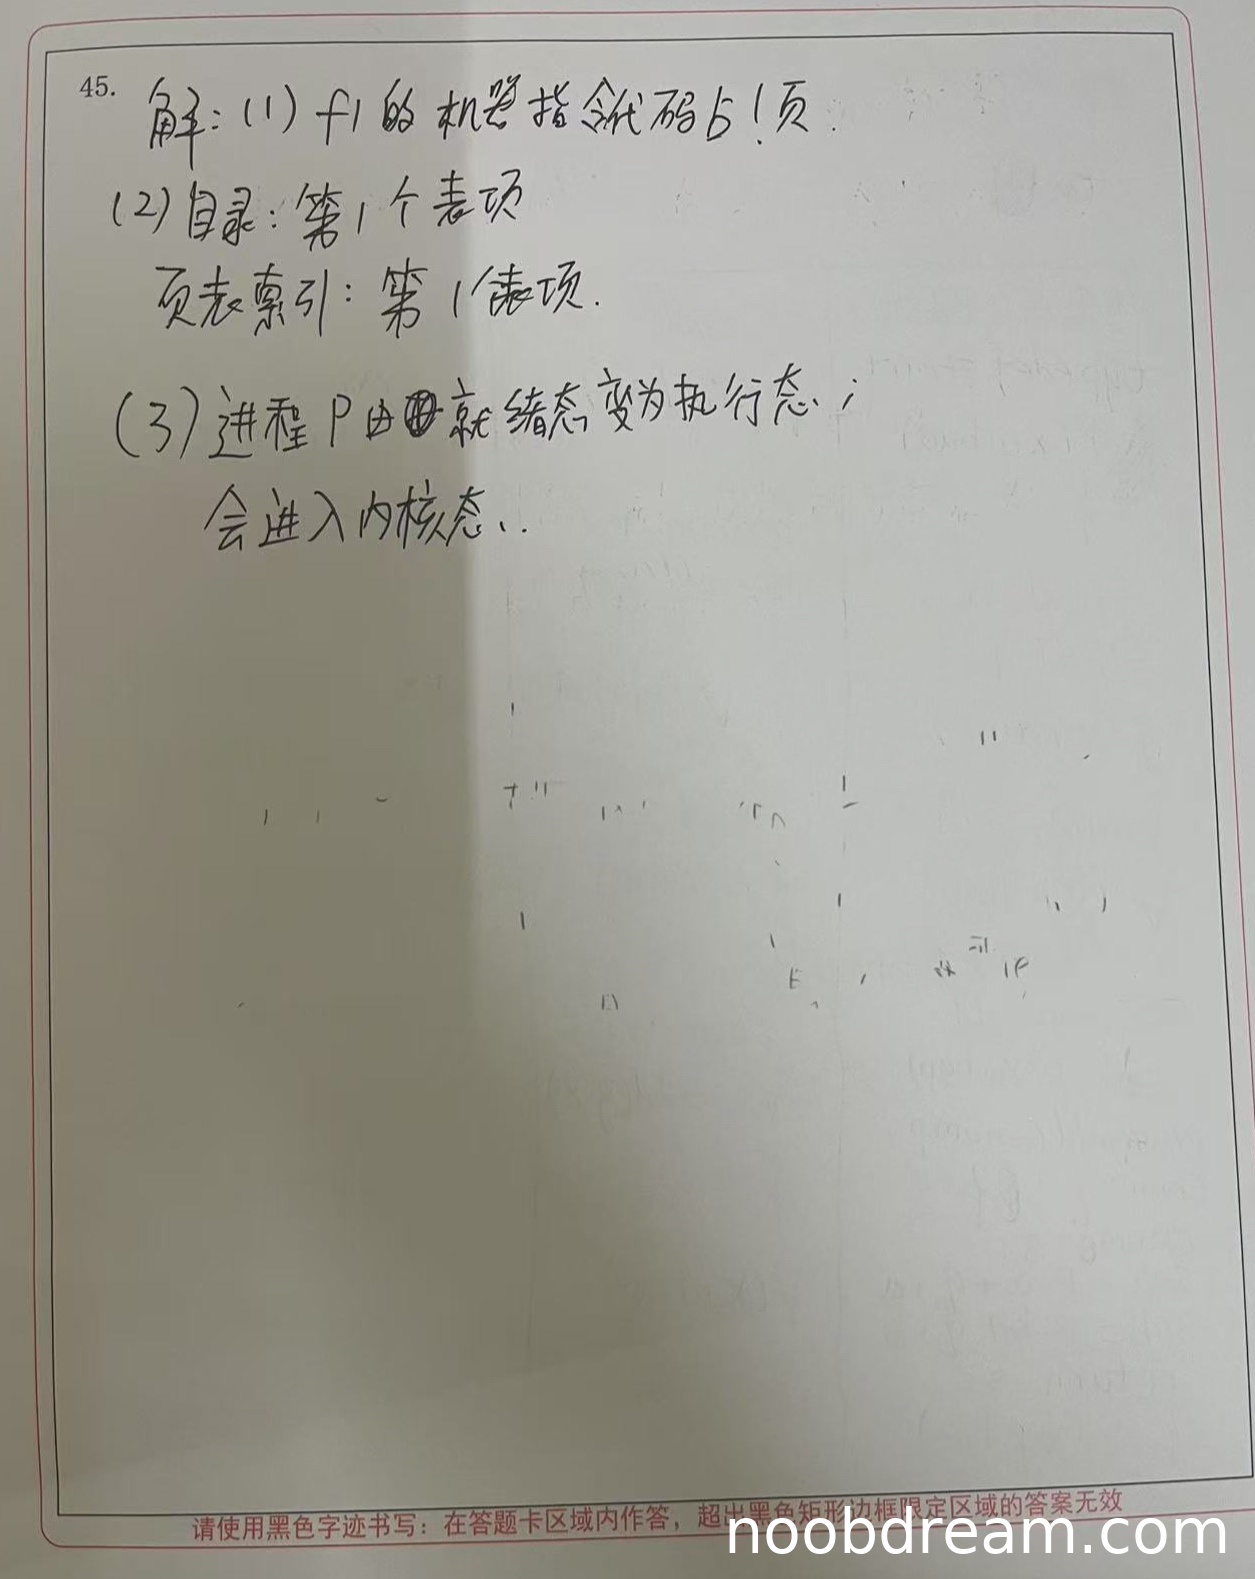 45. 解：(1) f1 的机器指令代码占1页.
(2) 目录：第1个表项
页表索引：第1个表项.
(3) 进程P由就绪态变为执行态；
会进入内核态.
请使用黑色字迹书写：在答题卡区域内作答，超出黑色矩形边框限定区域的答案无效
noobdream.com